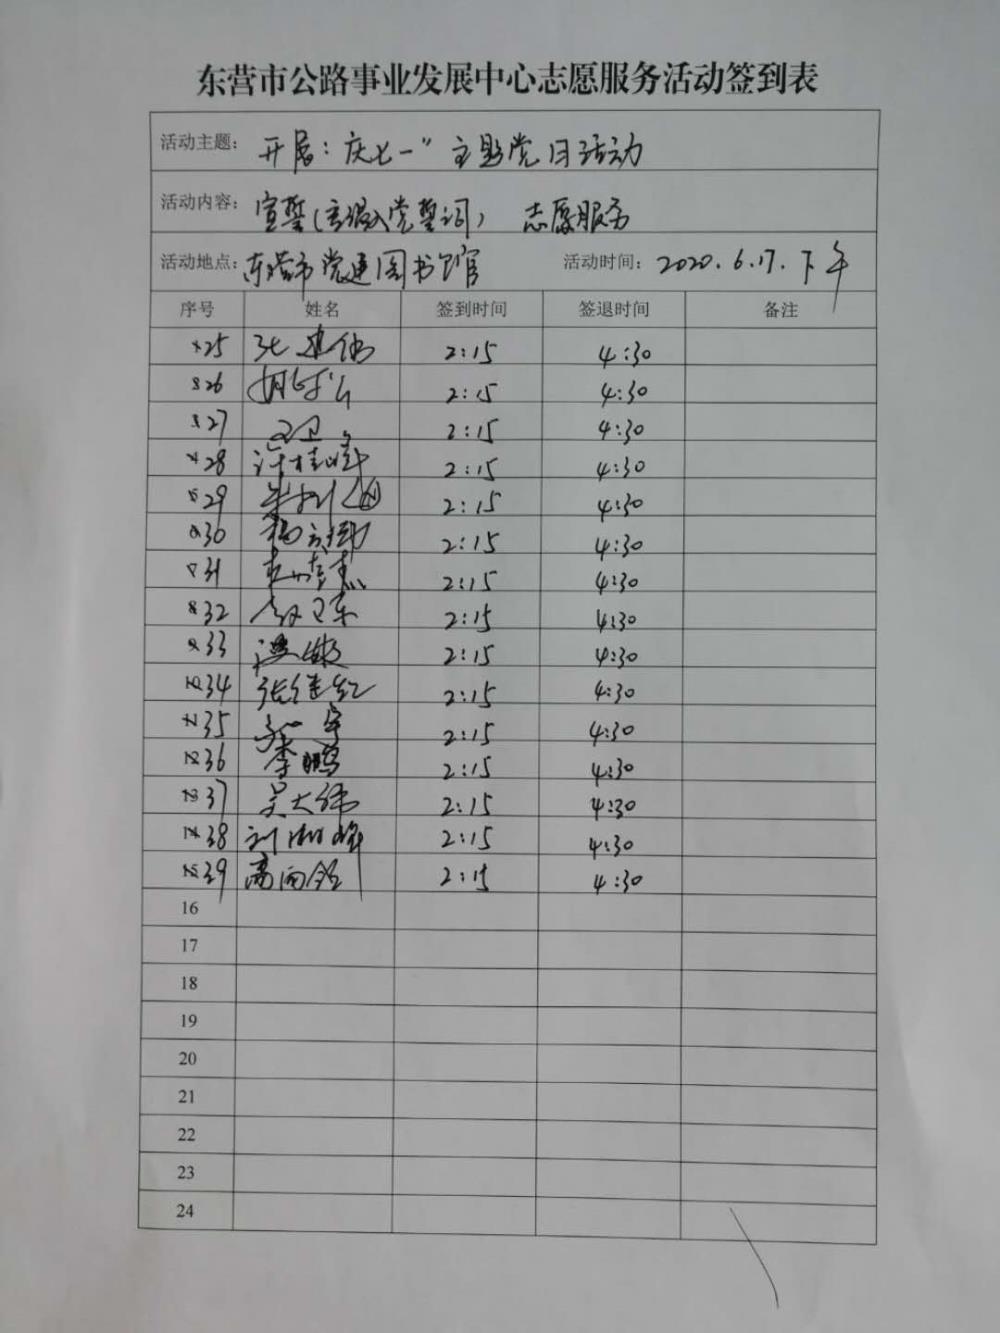 东营市公路事业发展中心志愿服务活动签到表
活动主题: 开展：庆七一"主题党日活动
活动内容: 宣誓(重温入党誓词) 志愿服务
活动地点: 东营市党建图书馆 活动时间: 2020.6.17.下午
序号 姓名 签到时间 签退时间 备注
25 张建伟 2:15 4:30
26 2:15 4:30
27 2:15 4:30
28 许桂峰 2:15 4:30
29 2:15 4:30
30 2:15 4:30
31 2:15 4:30
32 赵卫东 2:15 4:30
33 2:15 4:30
34 张继红 2:15 4:30
35 2:15 4:30
36 李鹏 2:15 4:30
37 吴大伟 2:15 4:30
38 刘湘峰 2:15 4:30
39 高雨 2:15 4:30
16
17
18
19
20
21
22
23
24